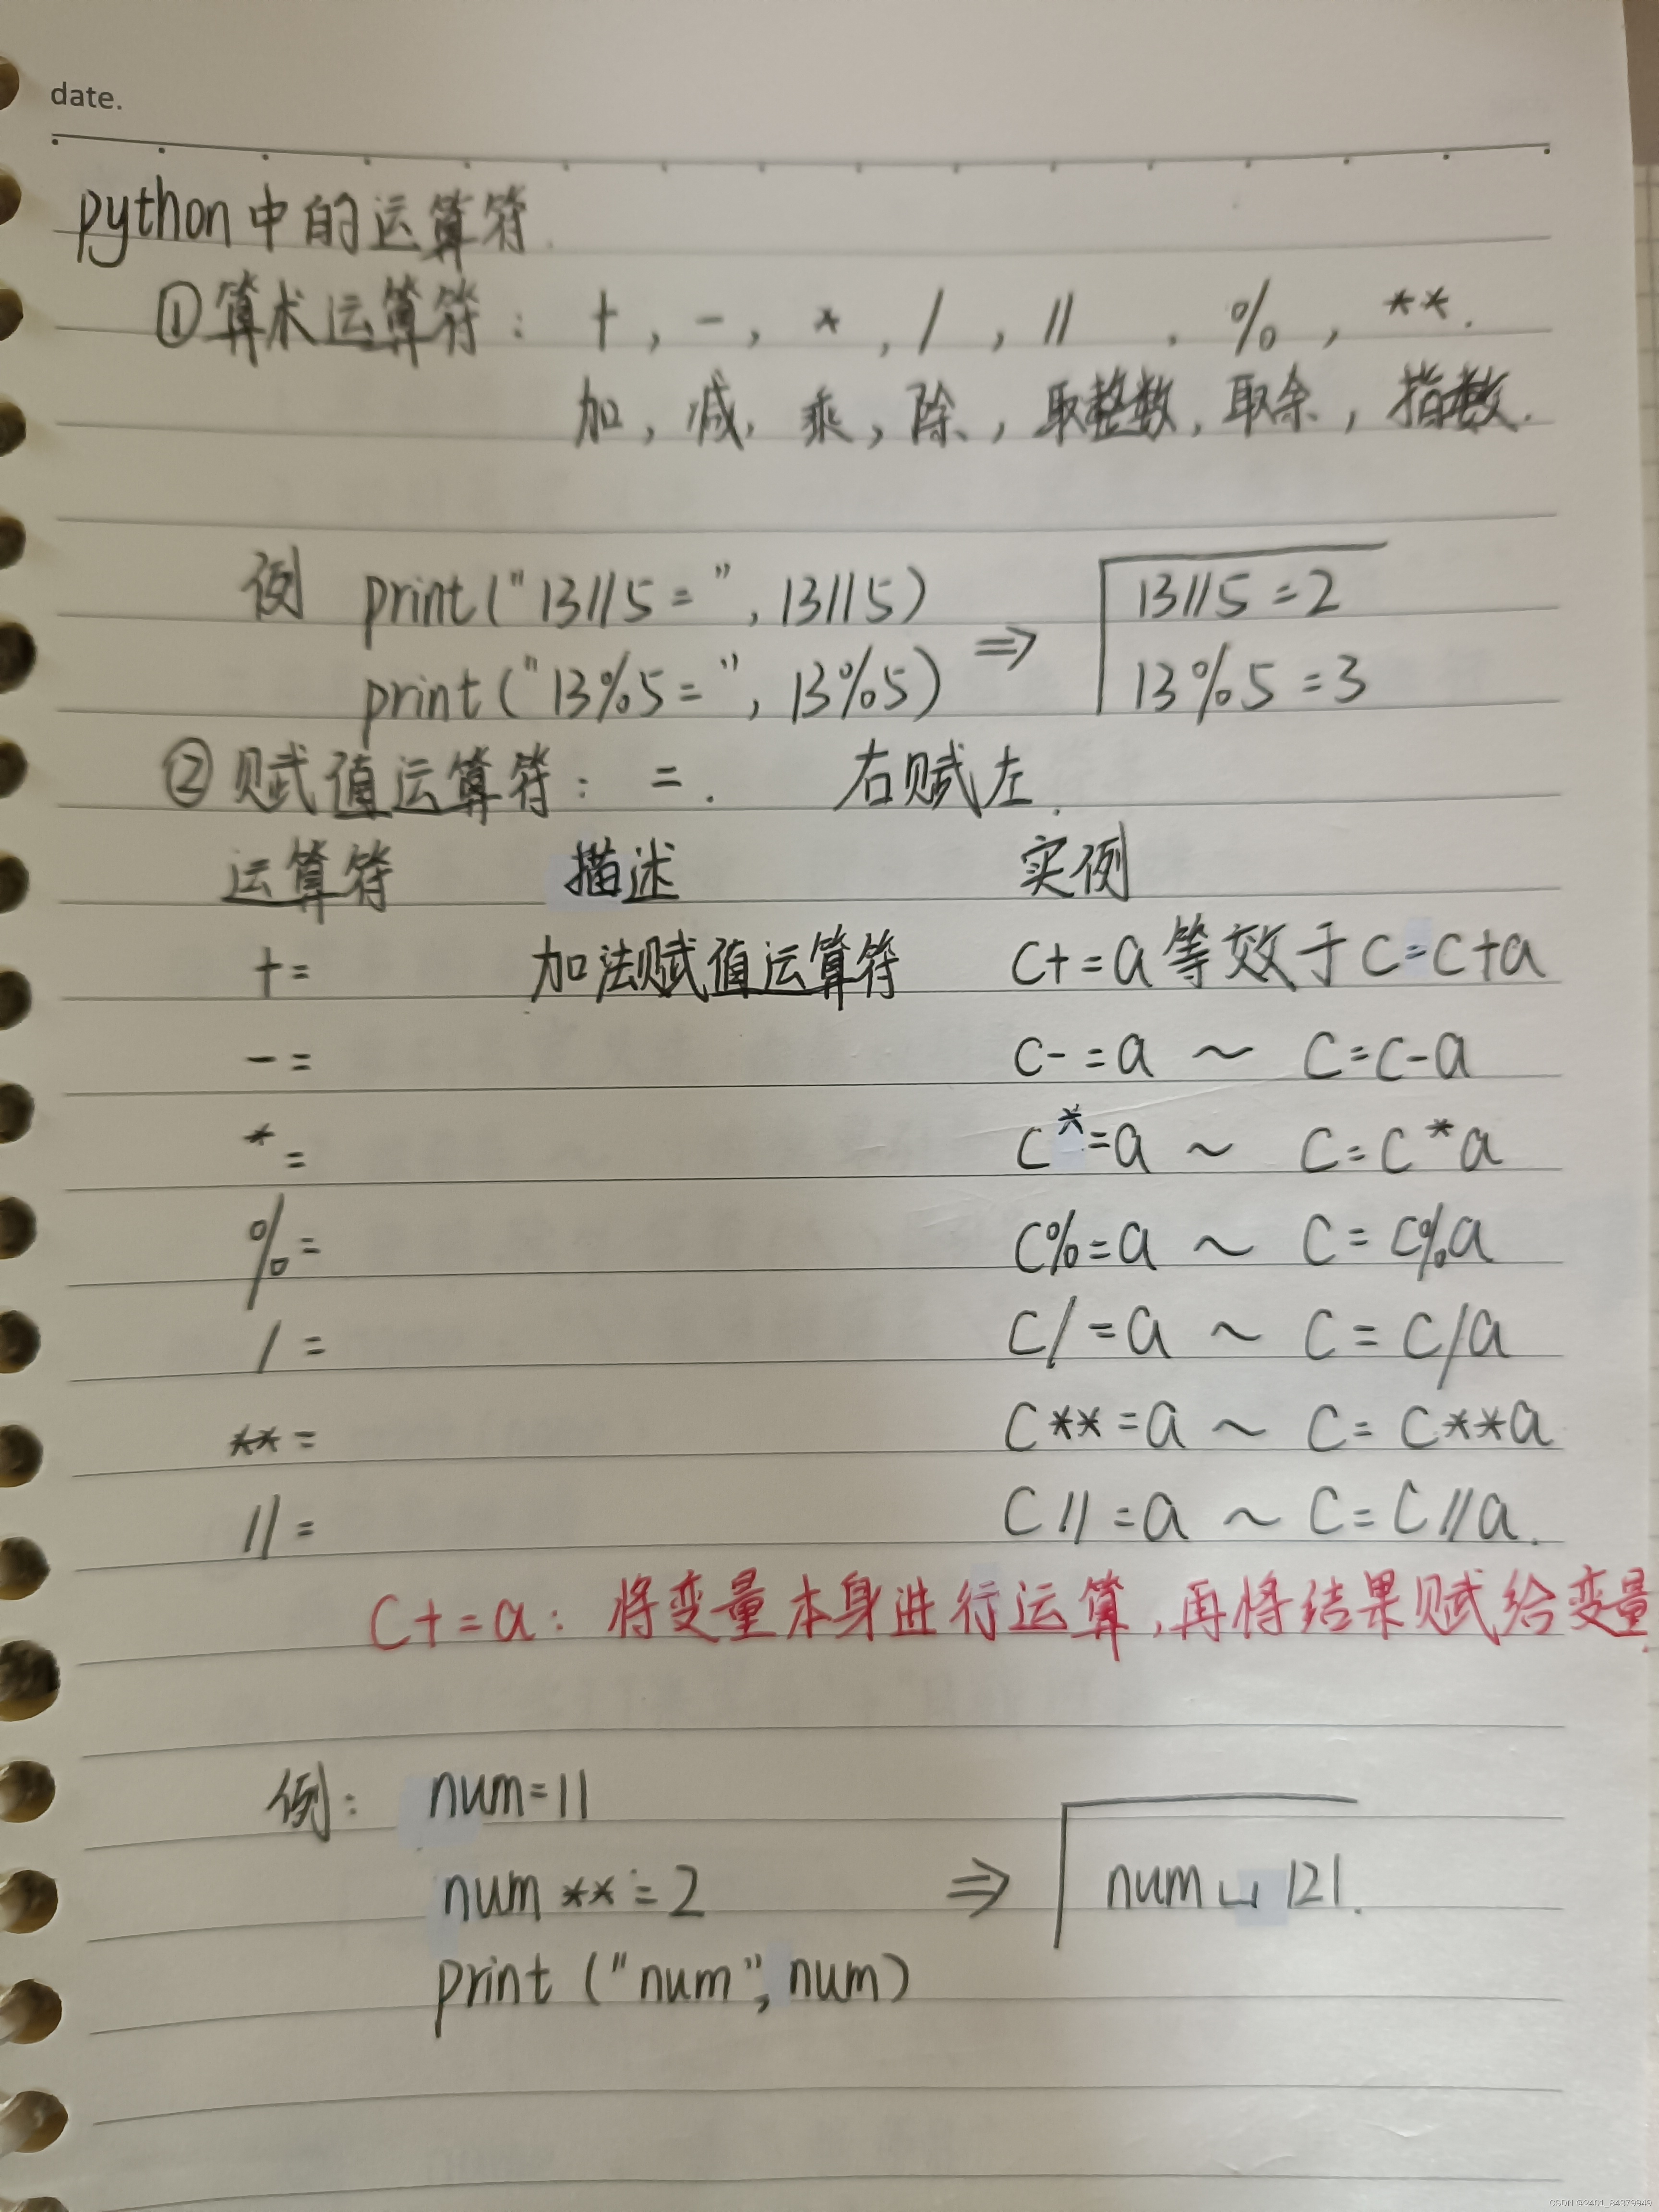 date.
python中的运算符.
①算术运算符: +, -, *, /, //, %, **.
加, 减, 乘, 除, 取整数, 取余, 指数.
例 print("13//5=", 13//5) ⇒ 13//5=2
print("13%5=", 13%5) 13%5=3
②赋值运算符: =. 右赋左.
运算符 描述 实例
+= 加法赋值运算符 C+=a 等效于 C=C+a
-= C-=a ~ C=C-a
*= C*=a ~ C=C*a
%= C%=a ~ C=C%a
/= C/=a ~ C=C/a
**= C**=a ~ C=C**a
//= C//=a ~ C=C//a.
C+=a: 将变量本身进行运算,再将结果赋给变量.
例: num=11
num**=2 ⇒ num␣121.
print("num", num)
CSDN @2401_84379949